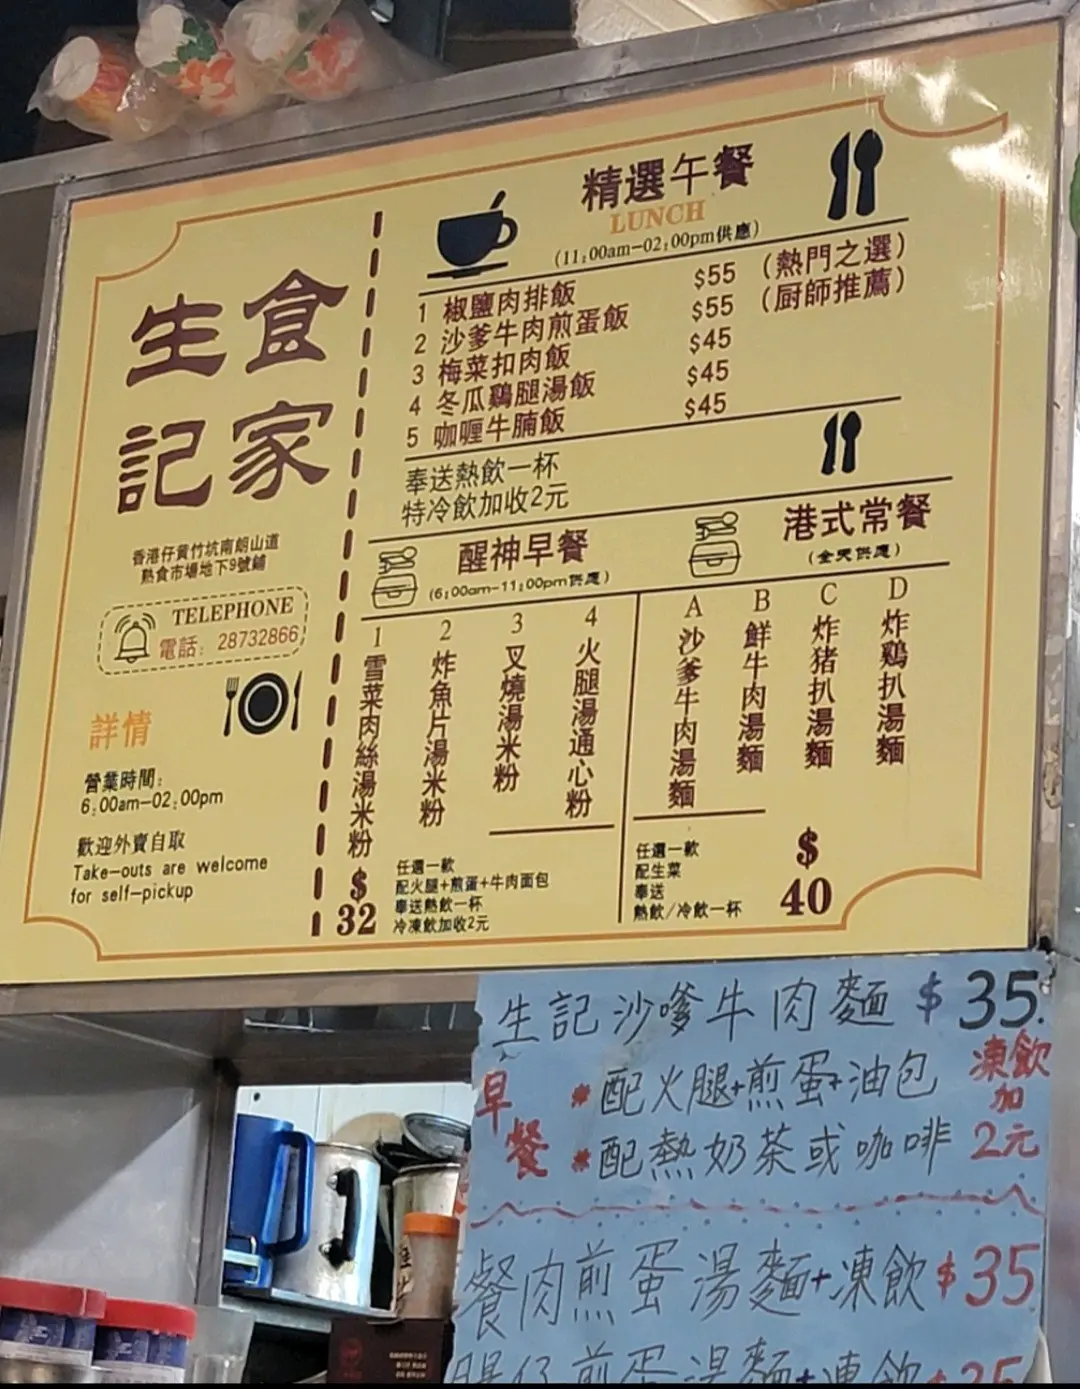 生食
記家
香港仔黃竹坑南朗山道
熟食市場地下9號鋪
TELEPHONE
電話: 28732866
詳情
營業時間:
6:00am—02:00pm
歡迎外賣自取
Take-outs are welcome
for self-pickup
精選午餐
LUNCH
(11:00am—02:00pm供應)
1 椒鹽肉排飯 $55 (熱門之選)
2 沙爹牛肉煎蛋飯 $55 (厨師推薦)
3 梅菜扣肉飯 $45
4 冬瓜鷄腿湯飯 $45
5 咖喱牛腩飯 $45
奉送熱飲一杯
特冷飲加收2元
醒神早餐
(6:00am—11:00pm供應)
1 雪菜肉絲湯米粉
2 炸魚片湯米粉
3 叉燒湯米粉
4 火腿湯通心粉
$
32
任選一款
配火腿+煎蛋+牛肉面包
奉送熱飲一杯
冷凍飲加收2元
港式常餐
(全天供應)
A 沙爹牛肉湯麵
B 鮮牛肉湯麵
C 炸猪扒湯麵
D 炸鷄扒湯麵
任選一款
配生菜
奉送
熱飲/冷飲一杯
$
40
生記沙嗲牛肉麵 $35.
早餐
* 配火腿+煎蛋+油包
* 配熱奶茶或咖啡
凍飲
加
2元
餐肉煎蛋湯麵+凍飲 $35
腸仔煎蛋湯麵+凍飲 $35